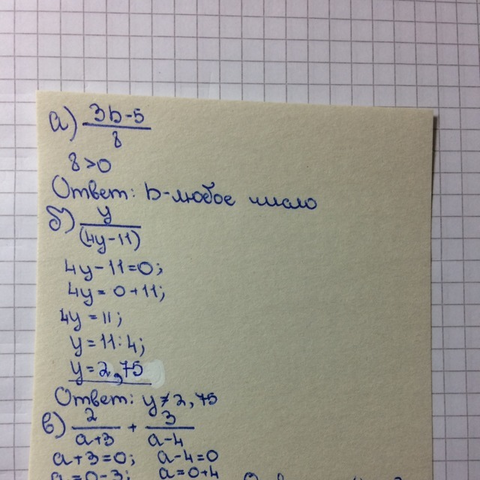 а) 3b-5
8
8>0
Ответ: b-любое число
б) y
(4y-11)
4y-11=0;
4y= 0+11;
4y=11;
y=11:4;
y=2,75
Ответ: y≠2,75
в) 2/a+3 + 3/a-4
a+3=0; a-4=0
a=0-3; a=0+4